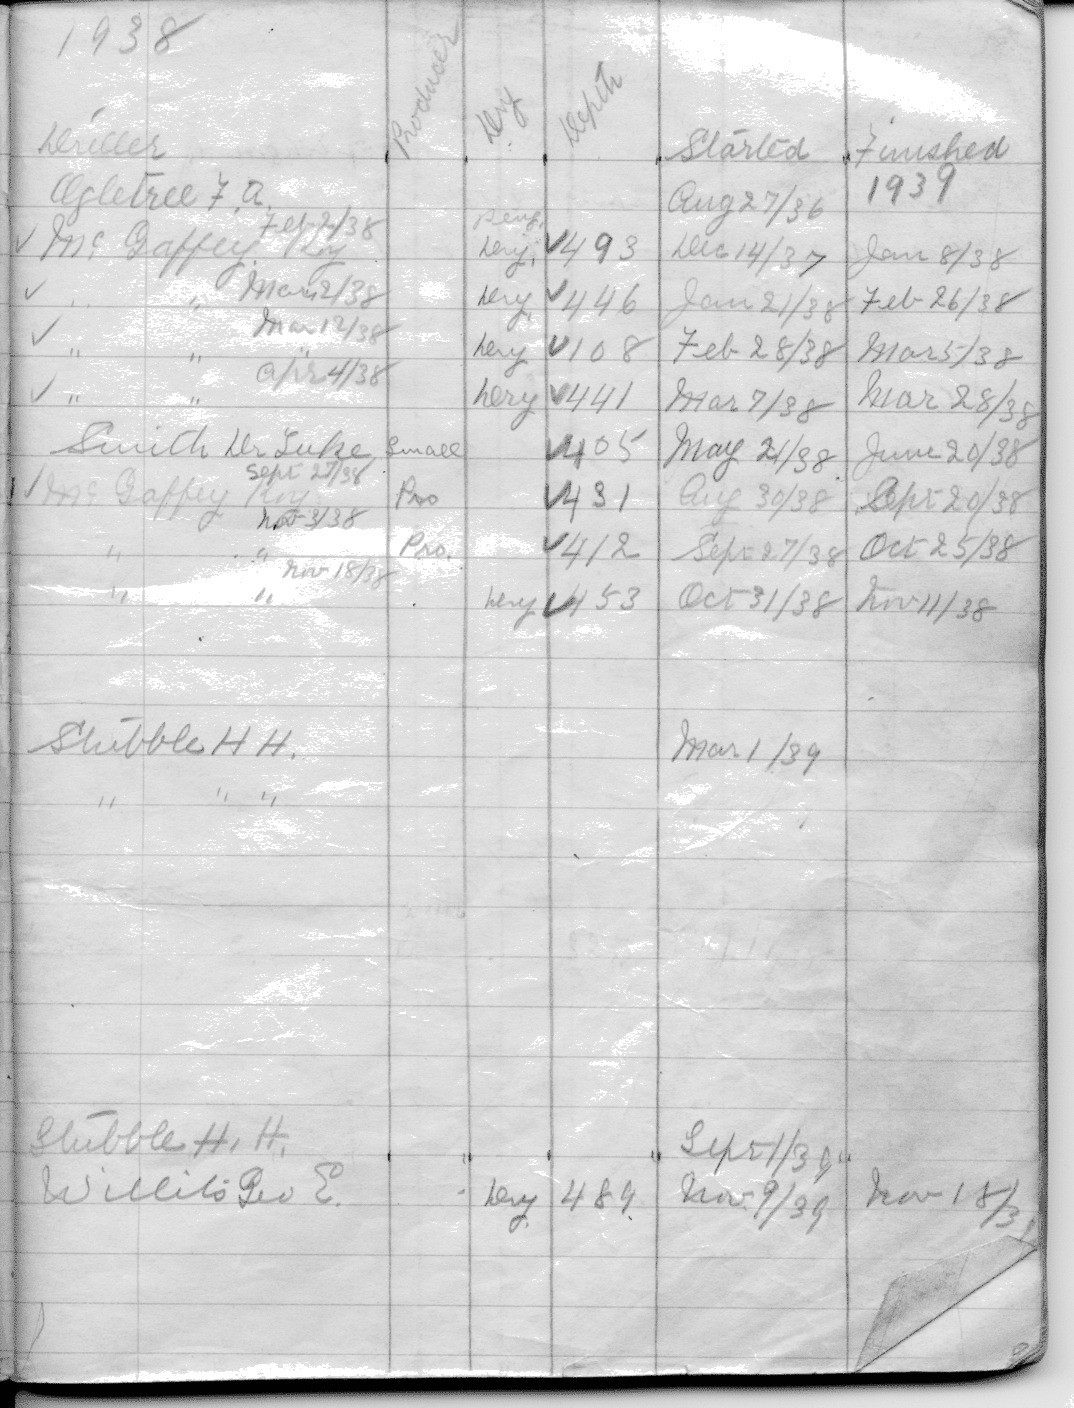 1938
Driller Producer Dry Depth Started Finished
Ogletree F. A. Aug 27/36 1939
Feb 2/38
✓ Mc Gaffey Roy Dry, ✓ 493 Dec 14/37 Jan 8/38
Mar 2/38
✓ " " Dry, ✓ 446 Jan 21/38 Feb 26/38
Mar 12/38
✓ " " " Dry ✓ 108 Feb 28/38 Mar 5/38
Apr 4/38
✓ " " Dry ✓ 441 Mar 7/38 Mar 28/38
Smith Dr Luke Small ✓ 405 May 21/38 June 20/38
Sept 27/38
✓ Mc Gaffey Roy Pro ✓ 431 Aug 30/38 Sept 20/38
Nov 3/38
" " Pro. ✓ 412 Sept 27/38 Oct 25/38
Nov 18/38
" " Dry ✓ 453 Oct 31/38 Nov 11/38
Stubble H H. Mar 1/39
" " "
Stubble H. H. Sept 1/39
Willits Geo E. Dry. 489 Nov. 9/39 Nov 18/3